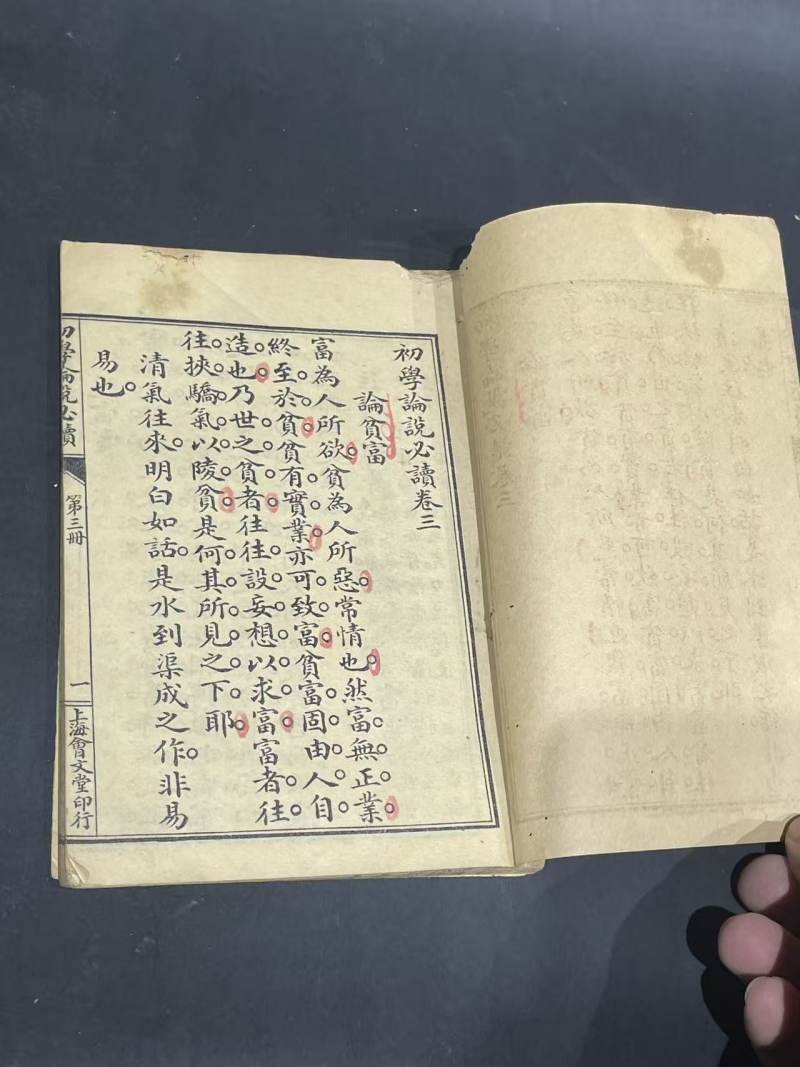 初學論說必讀卷三
論貧富
富為人所欲。貧為人所惡。常情也。然富無正業。
終至於貧。貧有實業。亦可致富。貧富固由人自
造也。乃世之貧者。往往設妄想以求富。富者往
往挾驕氣以陵貧。是何其所見之下耶。
清氣往來。明白如話。是水到渠成之作。非易
易也。
初學論說必讀
第三冊
一
上海會文堂印行